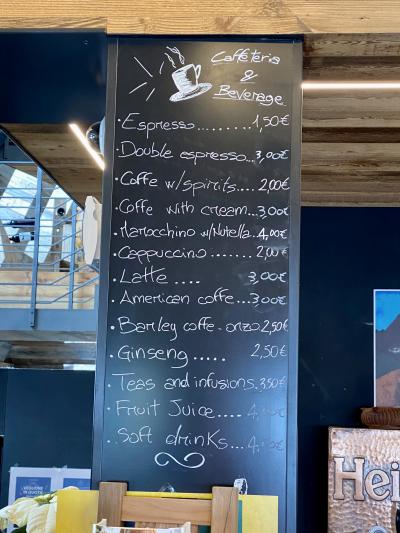 Caffetteria
&
Beverage
• Espresso......... 1,50€
• Double espresso... 3,00€
• Coffe w/spirits.... 2,00€
• Coffe with cream...3,00€
• Marocchino w/Nutella..4,00€
• Cappuccino ....... 2,00€
• Latte .... 3,00€
• American coffe...3,00€
• Barley coffe - orzo 2,50€
• Ginseng ..... 2,50€
• Teas and infusions. 3,50€
• Fruit Juice....
• Soft drinks....
Hei